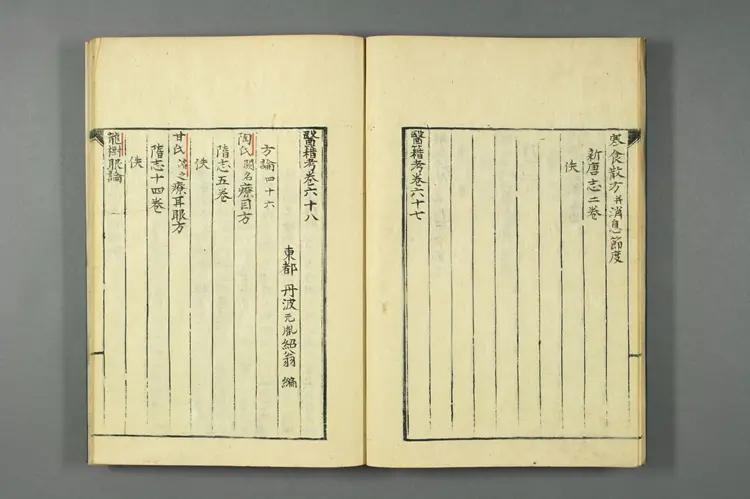 寒食散方并消息節度
新唐志二卷
佚
醫籍考卷六十七
醫籍考卷六十八
東都 丹波元胤紹翁 編
方論四十六
陶氏闕名療目方
隋志五卷
佚
甘氏濬之療耳眼方
隋志十四卷
佚
龍樹眼論